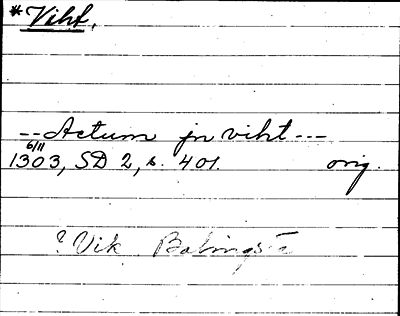 *Viht.
-- Actum jn viht ---
6/11
1303, SD 2, s. 401. orig.
? Vik Balingsta